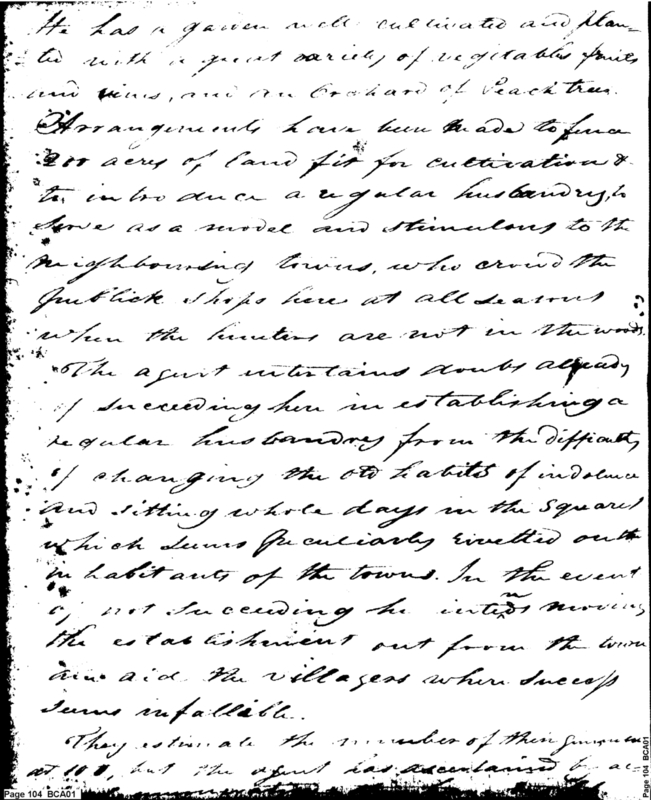 He has a garden well cultivated and plan-
ted with a great variety of vegetables fruits
and vines, and an orchard of Peach trees.
Arrangements have been made to fence
200 acres of land fit for cultivation &
to introduce a regular husbandry, to
serve as a model and stimulous to the
neighbouring towns, who crowd the
publick shops here at all seasons
when the hunters are not in the woods.
The agent entertains doubts already
of succeeding here in establishing a
regular husbandry from the difficulty
of changing the old habits of indolence
and sitting whole days in the squares
which seems peculiarly rivetted on the
inhabitants of the towns. In the event
of not succeeding he intends moving
the establishment out from the town
and aid the villagers where success
seems infallible.
They estimate the number of their gun men
at 100, but the agent has ascertained by ac-
Page 104 BCA01
Page 104 BCA01